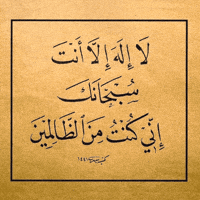 لَا إِلَهَ إِلَّا أَنْتَ
سُبْحَانَكَ
إِنِّي كُنْتُ مِنَ الظَّالِمِينَ